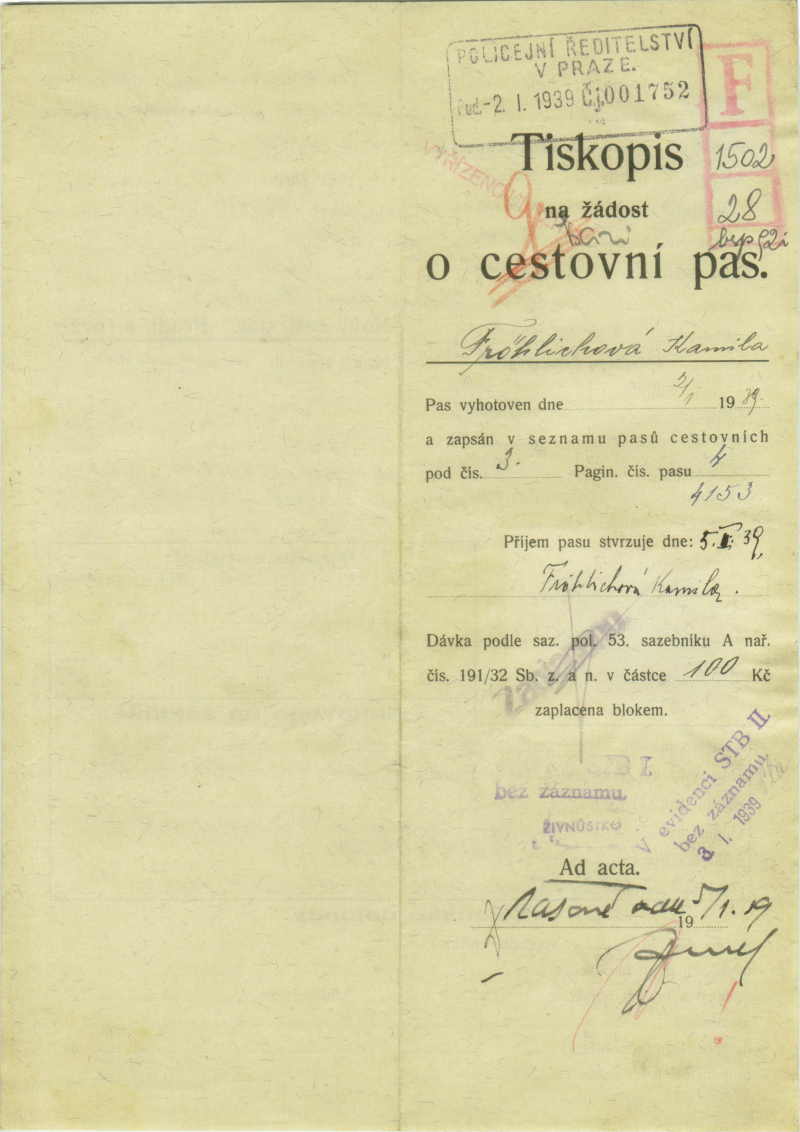 POLICEJNÍ ŘEDITELSTVÍ
V PRAZE.
-2. I. 1939 Čj. 001752
F
Tiskopis
1502
VYŘÍZENO
na žádost
28
o cestovní pas.
Fröhlichová Kamila
Pas vyhotoven dne 2/1 1939.
a zapsán v seznamu pasů cestovních
pod čís. 3. Pagin. čís. pasu 4
4153
Příjem pasu stvrzuje dne: 5.I. 39.
Fröhlichová Kamila.
Dávka podle saz. pol. 53. sazebníku A nař.
čís. 191/32 Sb. z. a n. v částce 100 Kč
zaplacena blokem.
STB I.
bez záznamu.
ŽIVNŮSTKO
V evidenci STB II.
bez záznamu
3 I. 1939
Ad acta.
5/1. 19
19